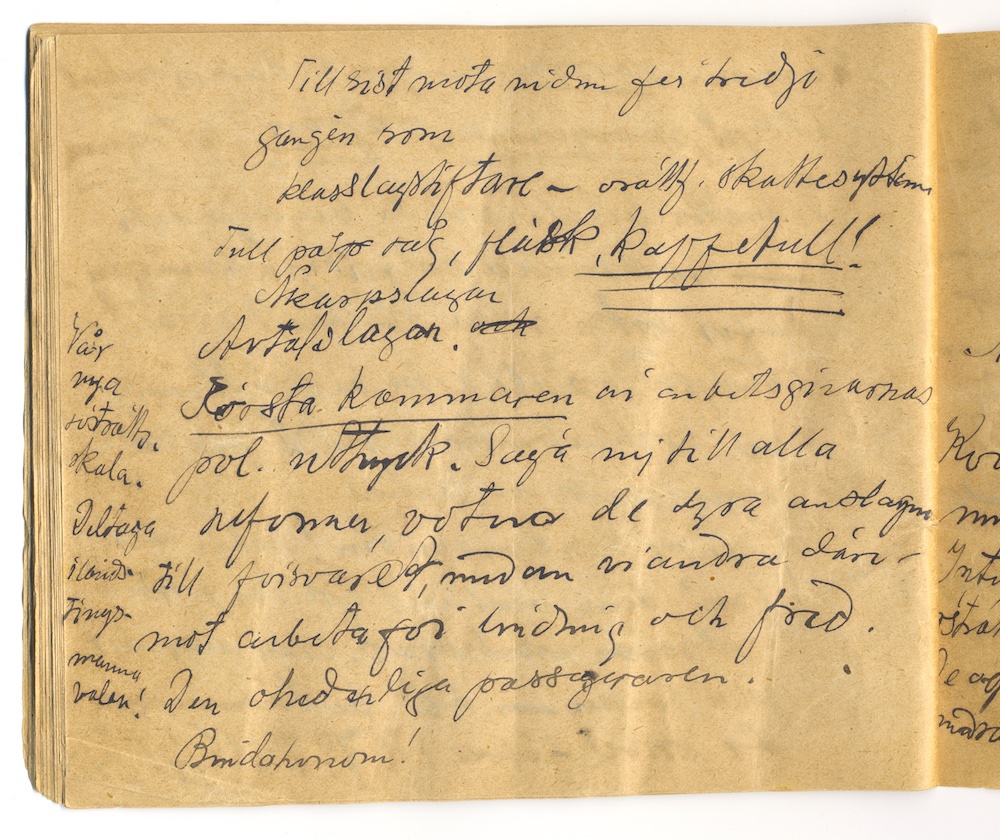 Till sist möta vi dem för tredje
gången som
klasslagstiftare – orättf. skattesystem
Tull på socker, fläsk, kaffetull!
Åkarpslagar
Avtalslagar. och
Första kammaren är arbetsgivarnas
pol. uttryck. Säga nej till alla
reformer, votera de dyra anslagen
till försvaret, medan vi andra däre-
mot arbeta för bildning och fred.
Den ohederliga passageraren.
Bind honom!
Vår
nya
rösträtts-
skala.
Deltaga
i lands-
tings-
manna
valen!